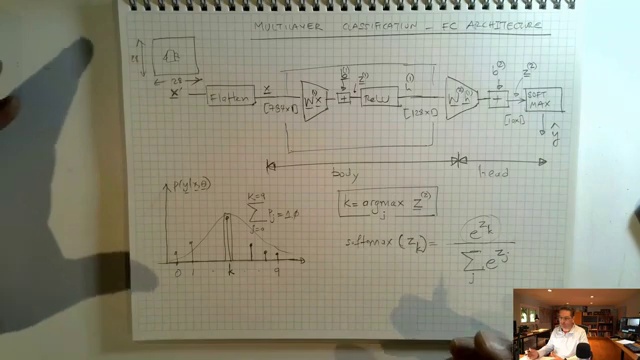 MULTILAYER CLASSIFICATION - FC ARCHITECTURE
28
28
X
Flatten
x
[784x1]
W⁽¹⁾x
b⁽¹⁾
+
z⁽¹⁾
ReLU
h⁽¹⁾
[128x1]
W⁽²⁾h⁽¹⁾
b⁽²⁾
+
z⁽²⁾
[10x1]
SOFT
MAX
ŷ
body
head
p(y|x;θ)
K=9
∑ p̂j = 1.0
j=0
0 1 . k 9
k = argmax z⁽²⁾
j
softmax (zk) = e^zk
∑ e^zj
j